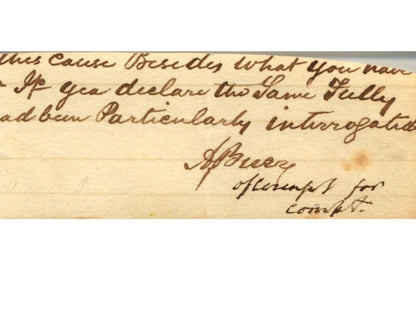 this cause Besides what you have
If yea declare the Same Fully
had been Particularly interrogated
of counsel for
compt.